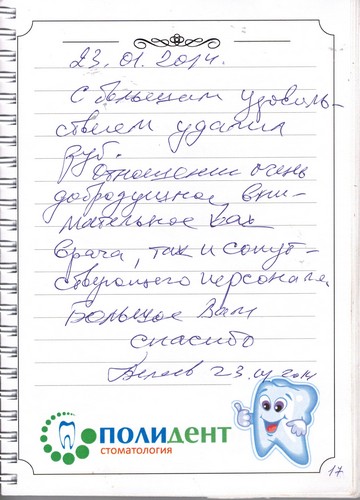 23.01.2014.
С большим удоволь-
ствием удалил
зуб.
Отношение очень
добродушное, вни-
мательное как
врача, так и сопут-
ствующего персонала.
Большое Вам
спасибо
23.01.2014
ПОЛИДЕНТ
СТОМАТОЛОГИЯ
17